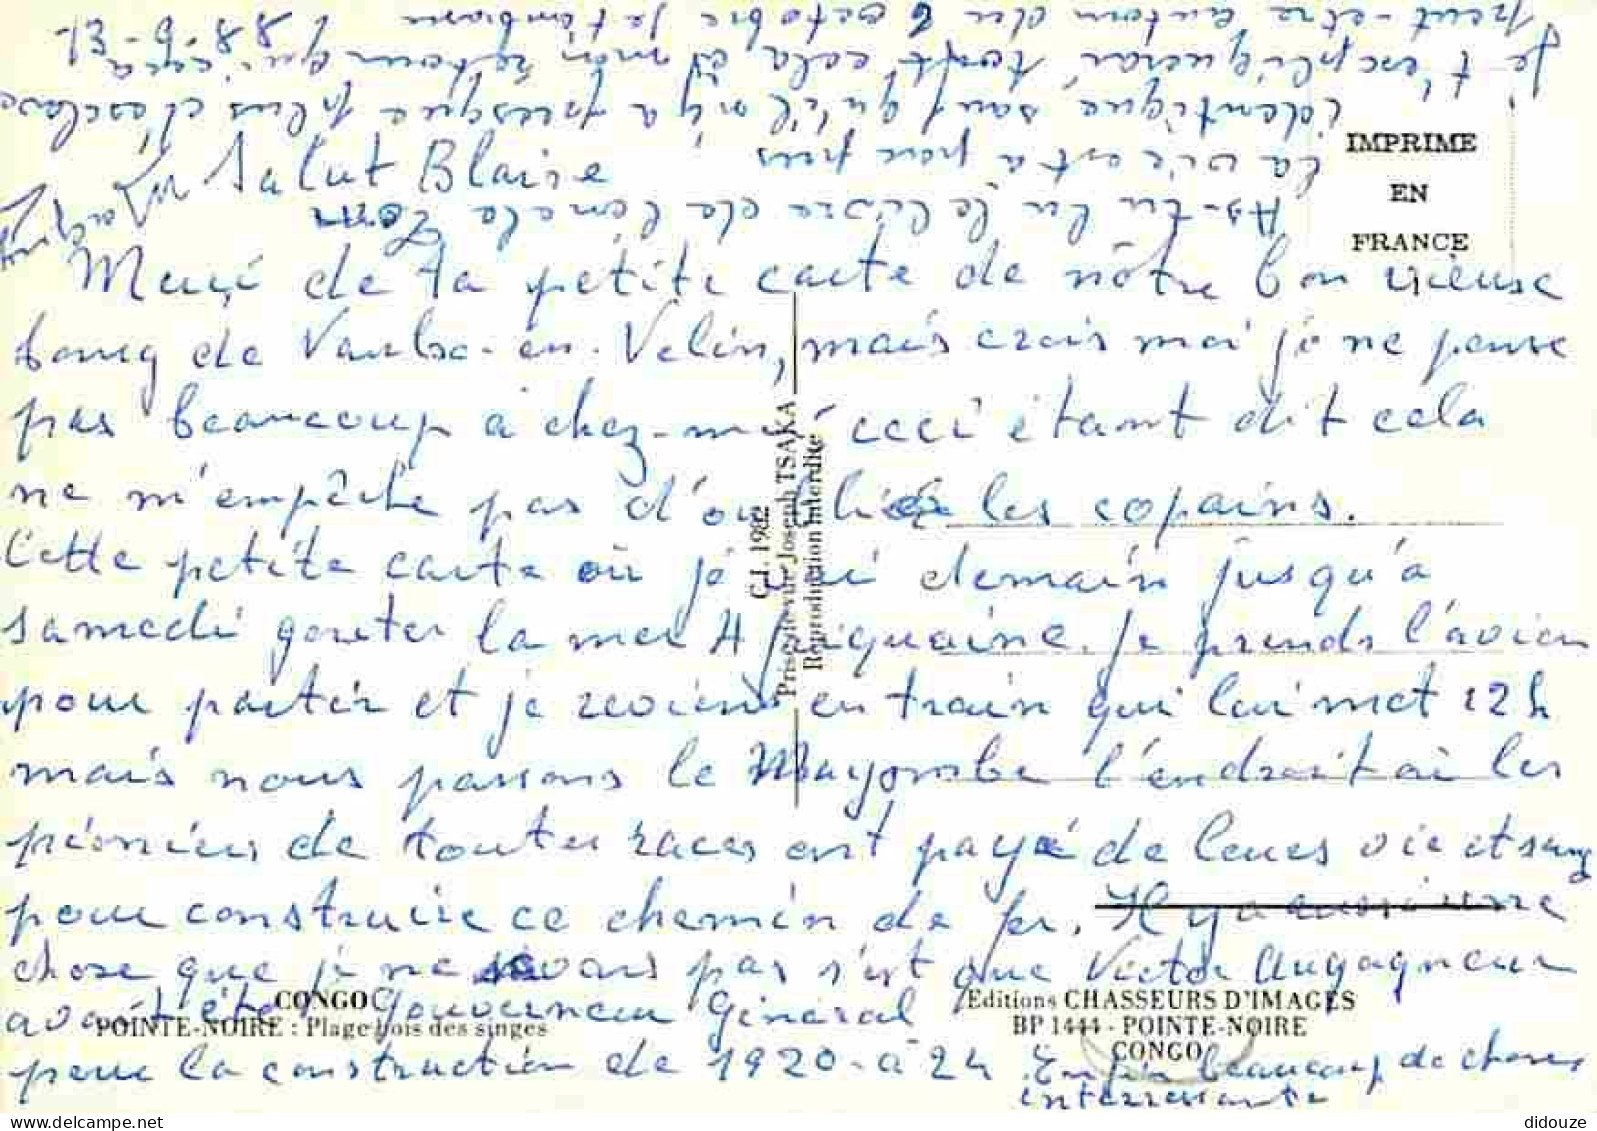 13-9-88
Salut Blaise
Merçi de ta petite carte de nôtre bon vieuse
bourg de Vaulx-en-Velin, mais crois moi je ne pense
pas beaucoup à chez-moi ceci étant dit cela
ne m'empêche pas d'oublier les copains.
Cette petite carte où j'irai demain jusqu'à
samedi gouter la mer Afriquaine. Je prends l'avion
pour partir et je reviens en train qui lui met 12h
mais nous passons le Mayombe l'endroit où les
pionniers de toutes races ont payé de leurs vie et sang
pour construire ce chemin de fer. Il y a aussi une
chose que je ne savais pas s'est que Victor Augagneur
avait été Gouverneur Géneral
pour la construction de 1920-à 24 Enfin beaucoup de choses
interressante
As-tu lu le livre de londo
La vie est à peu près
identique sauf qu'il n'y a presque plus d'esclave
Je t'expliquerai tout cela à mon retour qui sera
peut-etre autour du 6 octobre je t'embrasse
IMPRIME
EN
FRANCE
C.I. 1982
Prise de vue Joseph TSAKA
Reproduction interdite
CONGO
POINTE-NOIRE : Plage bois des singes
Editions CHASSEURS D'IMAGES
BP 1444 - POINTE-NOIRE
CONGO
didouze